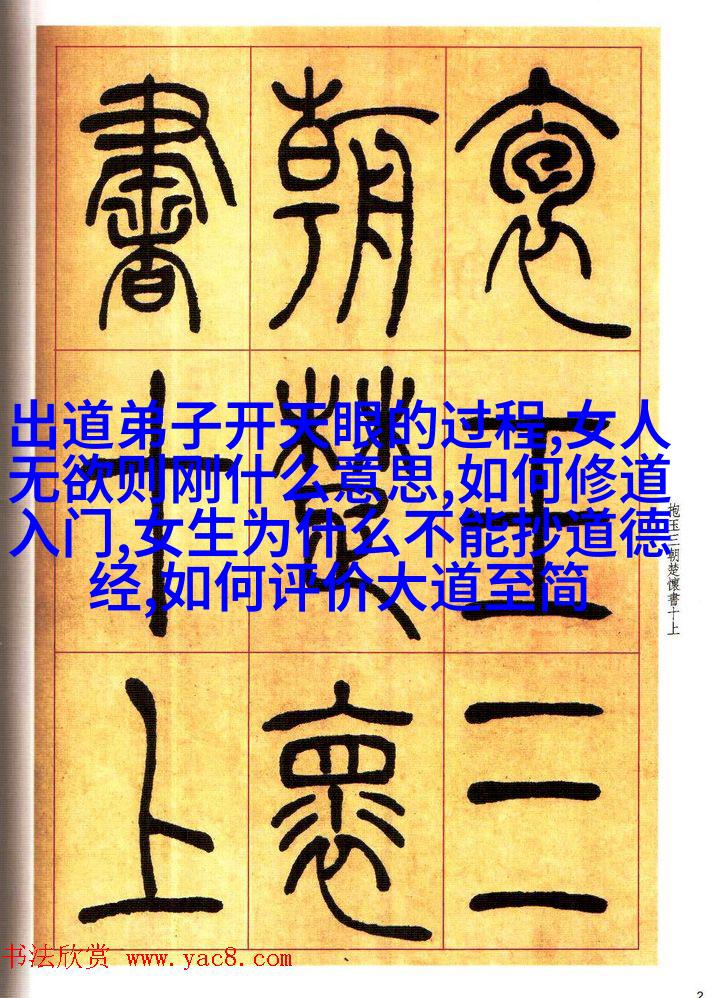 袌玉三
朝楚褱
書十上
出道弟子开天眼的过程,女人
无欲则刚什么意思,如何修道
入门,女生为什么不能抄道德
经,如何评价大道至简
抱玉三朝楚懷書十上
书法欣赏 www.yac8.com
2